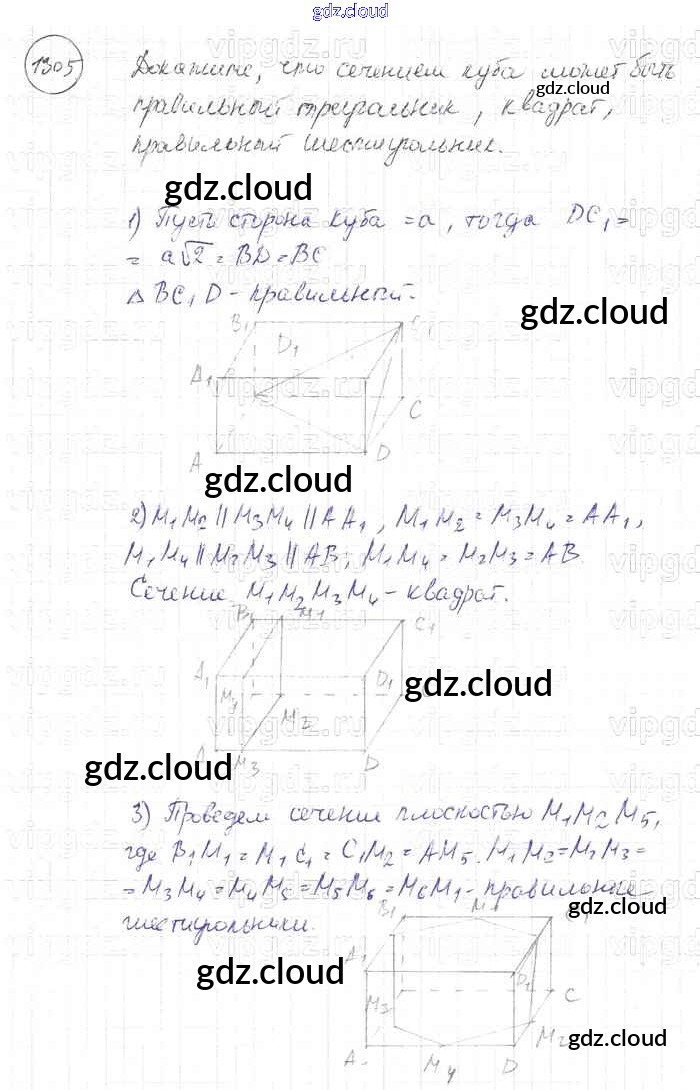 gdz.cloud
1305
Докажите, что сечением куба может быть
gdz.cloud
правильный треугольник, квадрат,
правильный шестиугольник.
gdz.cloud
1) Пусть сторона куба = a, тогда DC₁ =
= a√2 = BD = BC
Δ BC₁D - правильный.
gdz.cloud
B₁ D₁ C₁
A₁
C
A D
gdz.cloud
2) M₁M₂ || M₃M₄ || AA₁, M₁M₂ = M₃M₄ = AA₁,
M₁M₄ || M₂M₃ || AB; M₁M₄ = M₂M₃ = AB.
Сечение M₁M₂M₃M₄ - квадрат.
B₁ M₁ C₁
A₁ M₄ D₁
gdz.cloud
M₂
A M₃ D
gdz.cloud
3) Проведем сечение плоскостью M₁M₂M₅,
где B₁M₁ = M₁C₁ = C₁M₂ = AM₅. M₁M₂ = M₂M₃ =
= M₃M₄ = M₄M₅ = M₅M₆ = M₆M₁ - правильные
шестиугольники.
gdz.cloud
B₁ M₁ C₁
A₁ D₁
gdz.cloud
M₃ C
M₂
A M₄ D
gdz.cloud